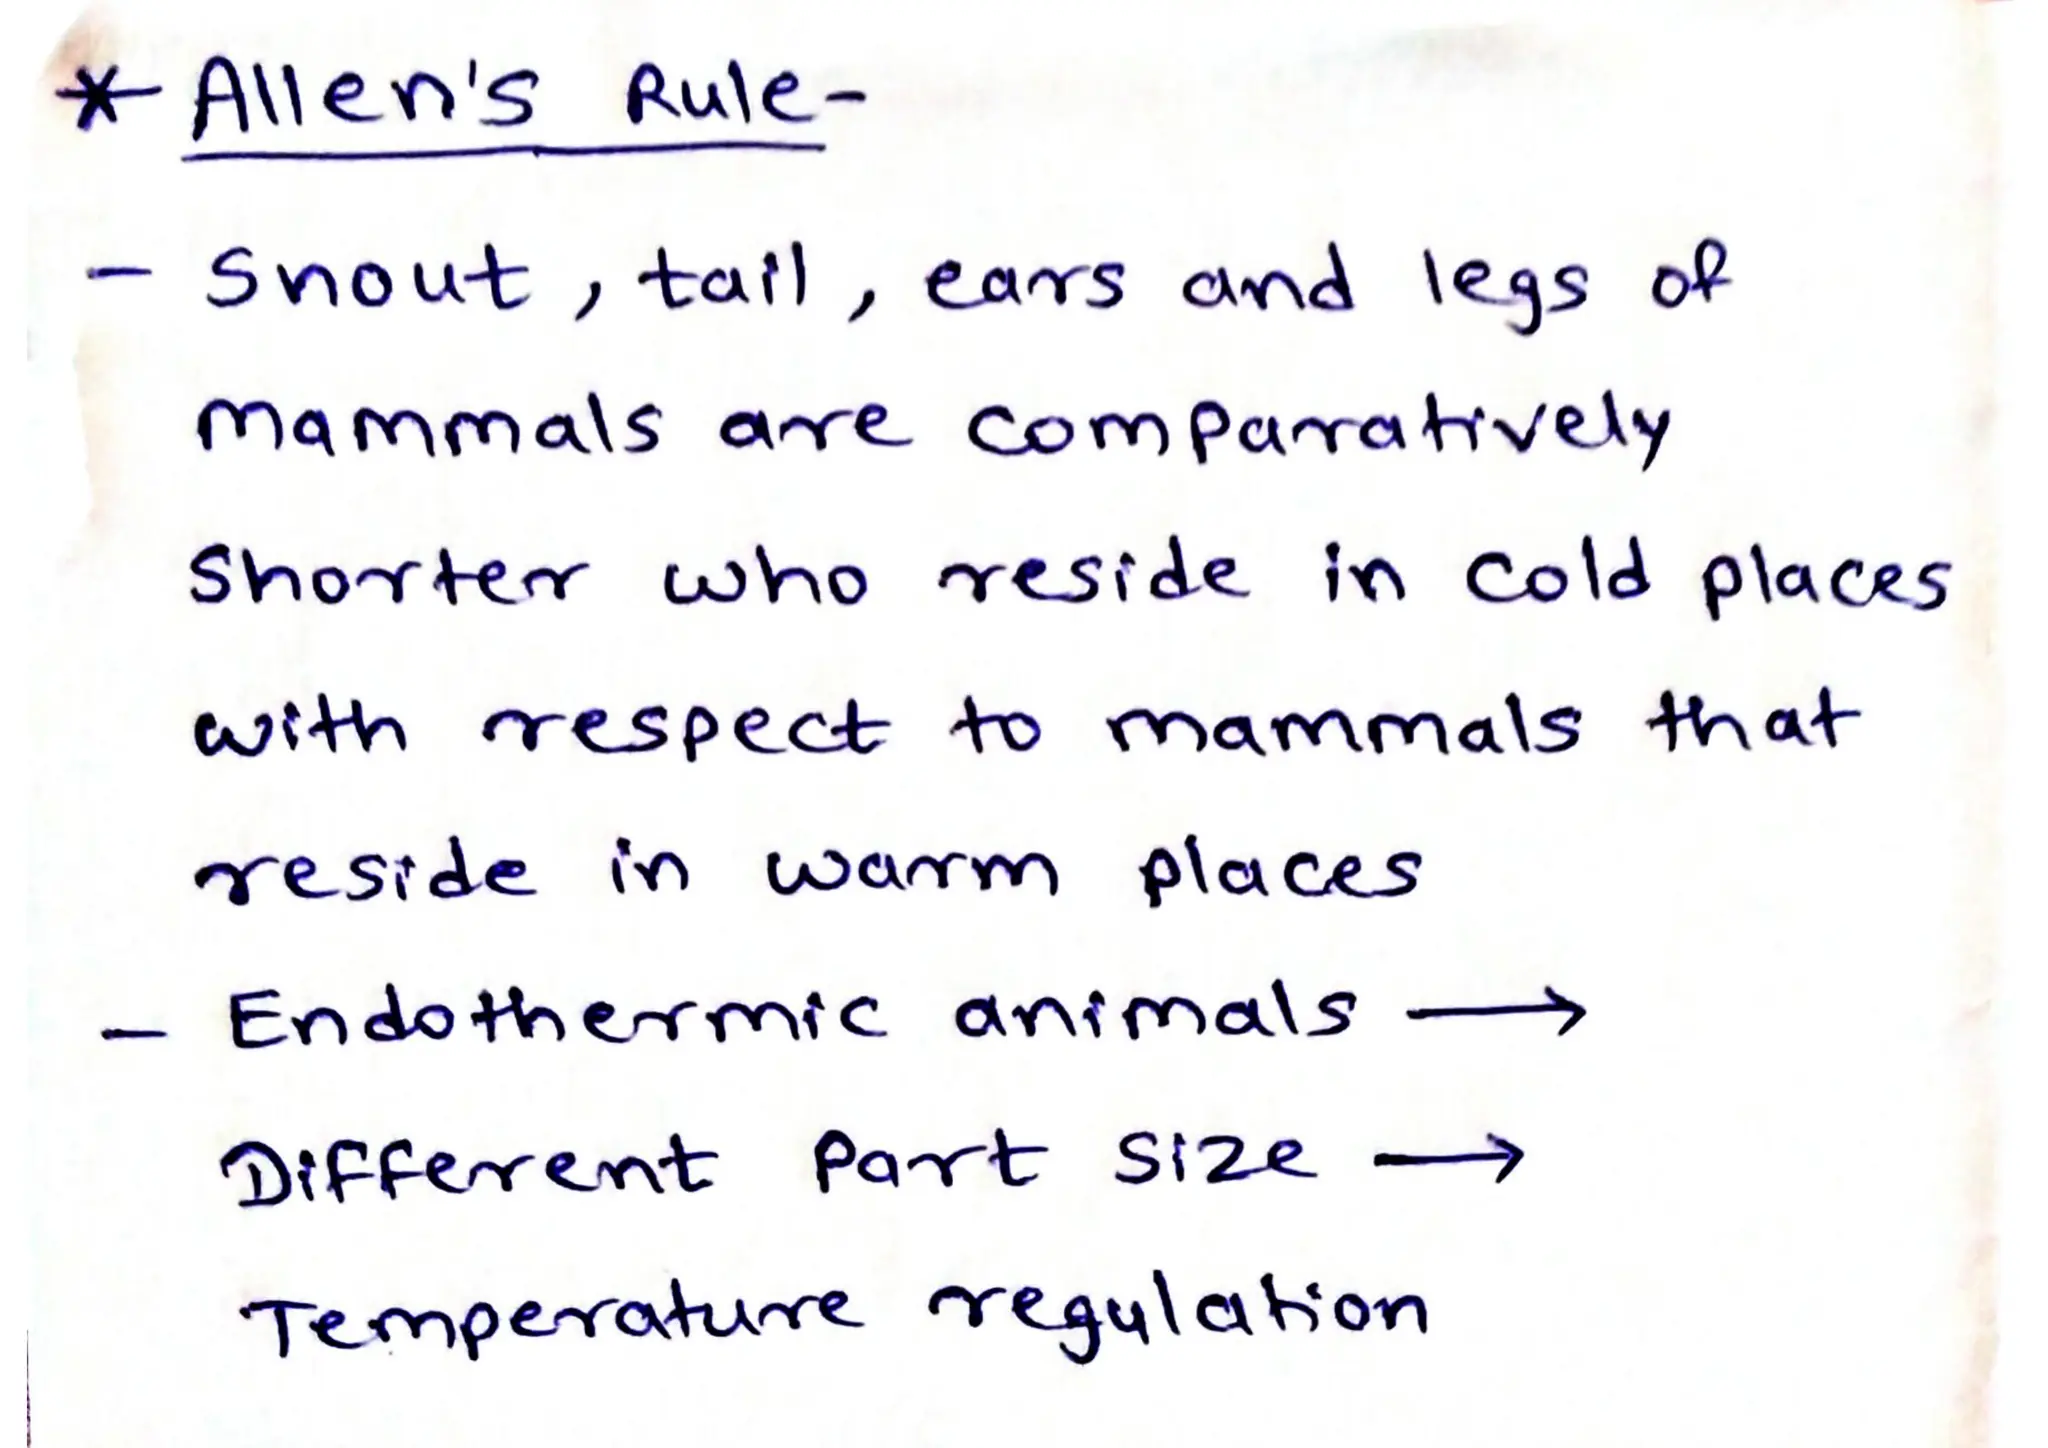 * Allen's Rule-
- Snout, tail, ears and legs of
mammals are comparatively
Shorter who reside in cold places
with respect to mammals that
reside in warm places
- Endothermic animals →
Different Part size →
Temperature regulation